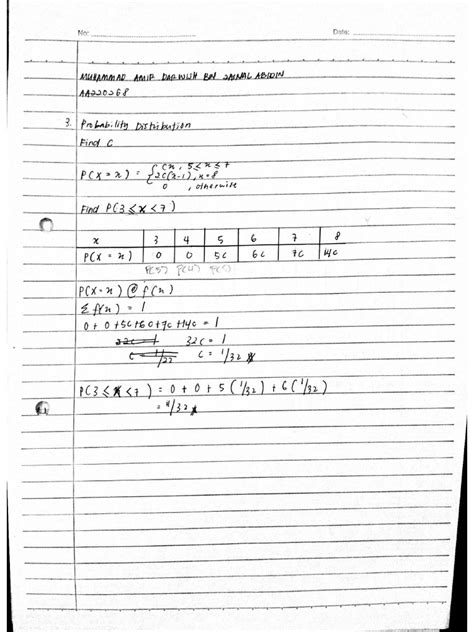 No:
Date:
MUHAMMAD AMIF DARWISH BIN ZAINAL ABIDIN
AA220268
3. Probability Distribution
Find C
P(X = x) = { Cx, 5 ≤ x ≤ 7
2C(x-1), x = 8
0 , otherwise
Find P(3 ≤ X < 7)
x 3 4 5 6 7 8
P(X = x) 0 0 5c 6c 7c 14c
P(3) P(4) P(5)
P(X=x) @ f(x)
Σ f(x) = 1
0 + 0 + 5c + 6c + 7c + 14c = 1
32c = 1 32c = 1
c = 1/22 c = 1/32
P(3 ≤ X < 7) = 0 + 0 + 5 (1/32) + 6 (1/32)
= 11/32